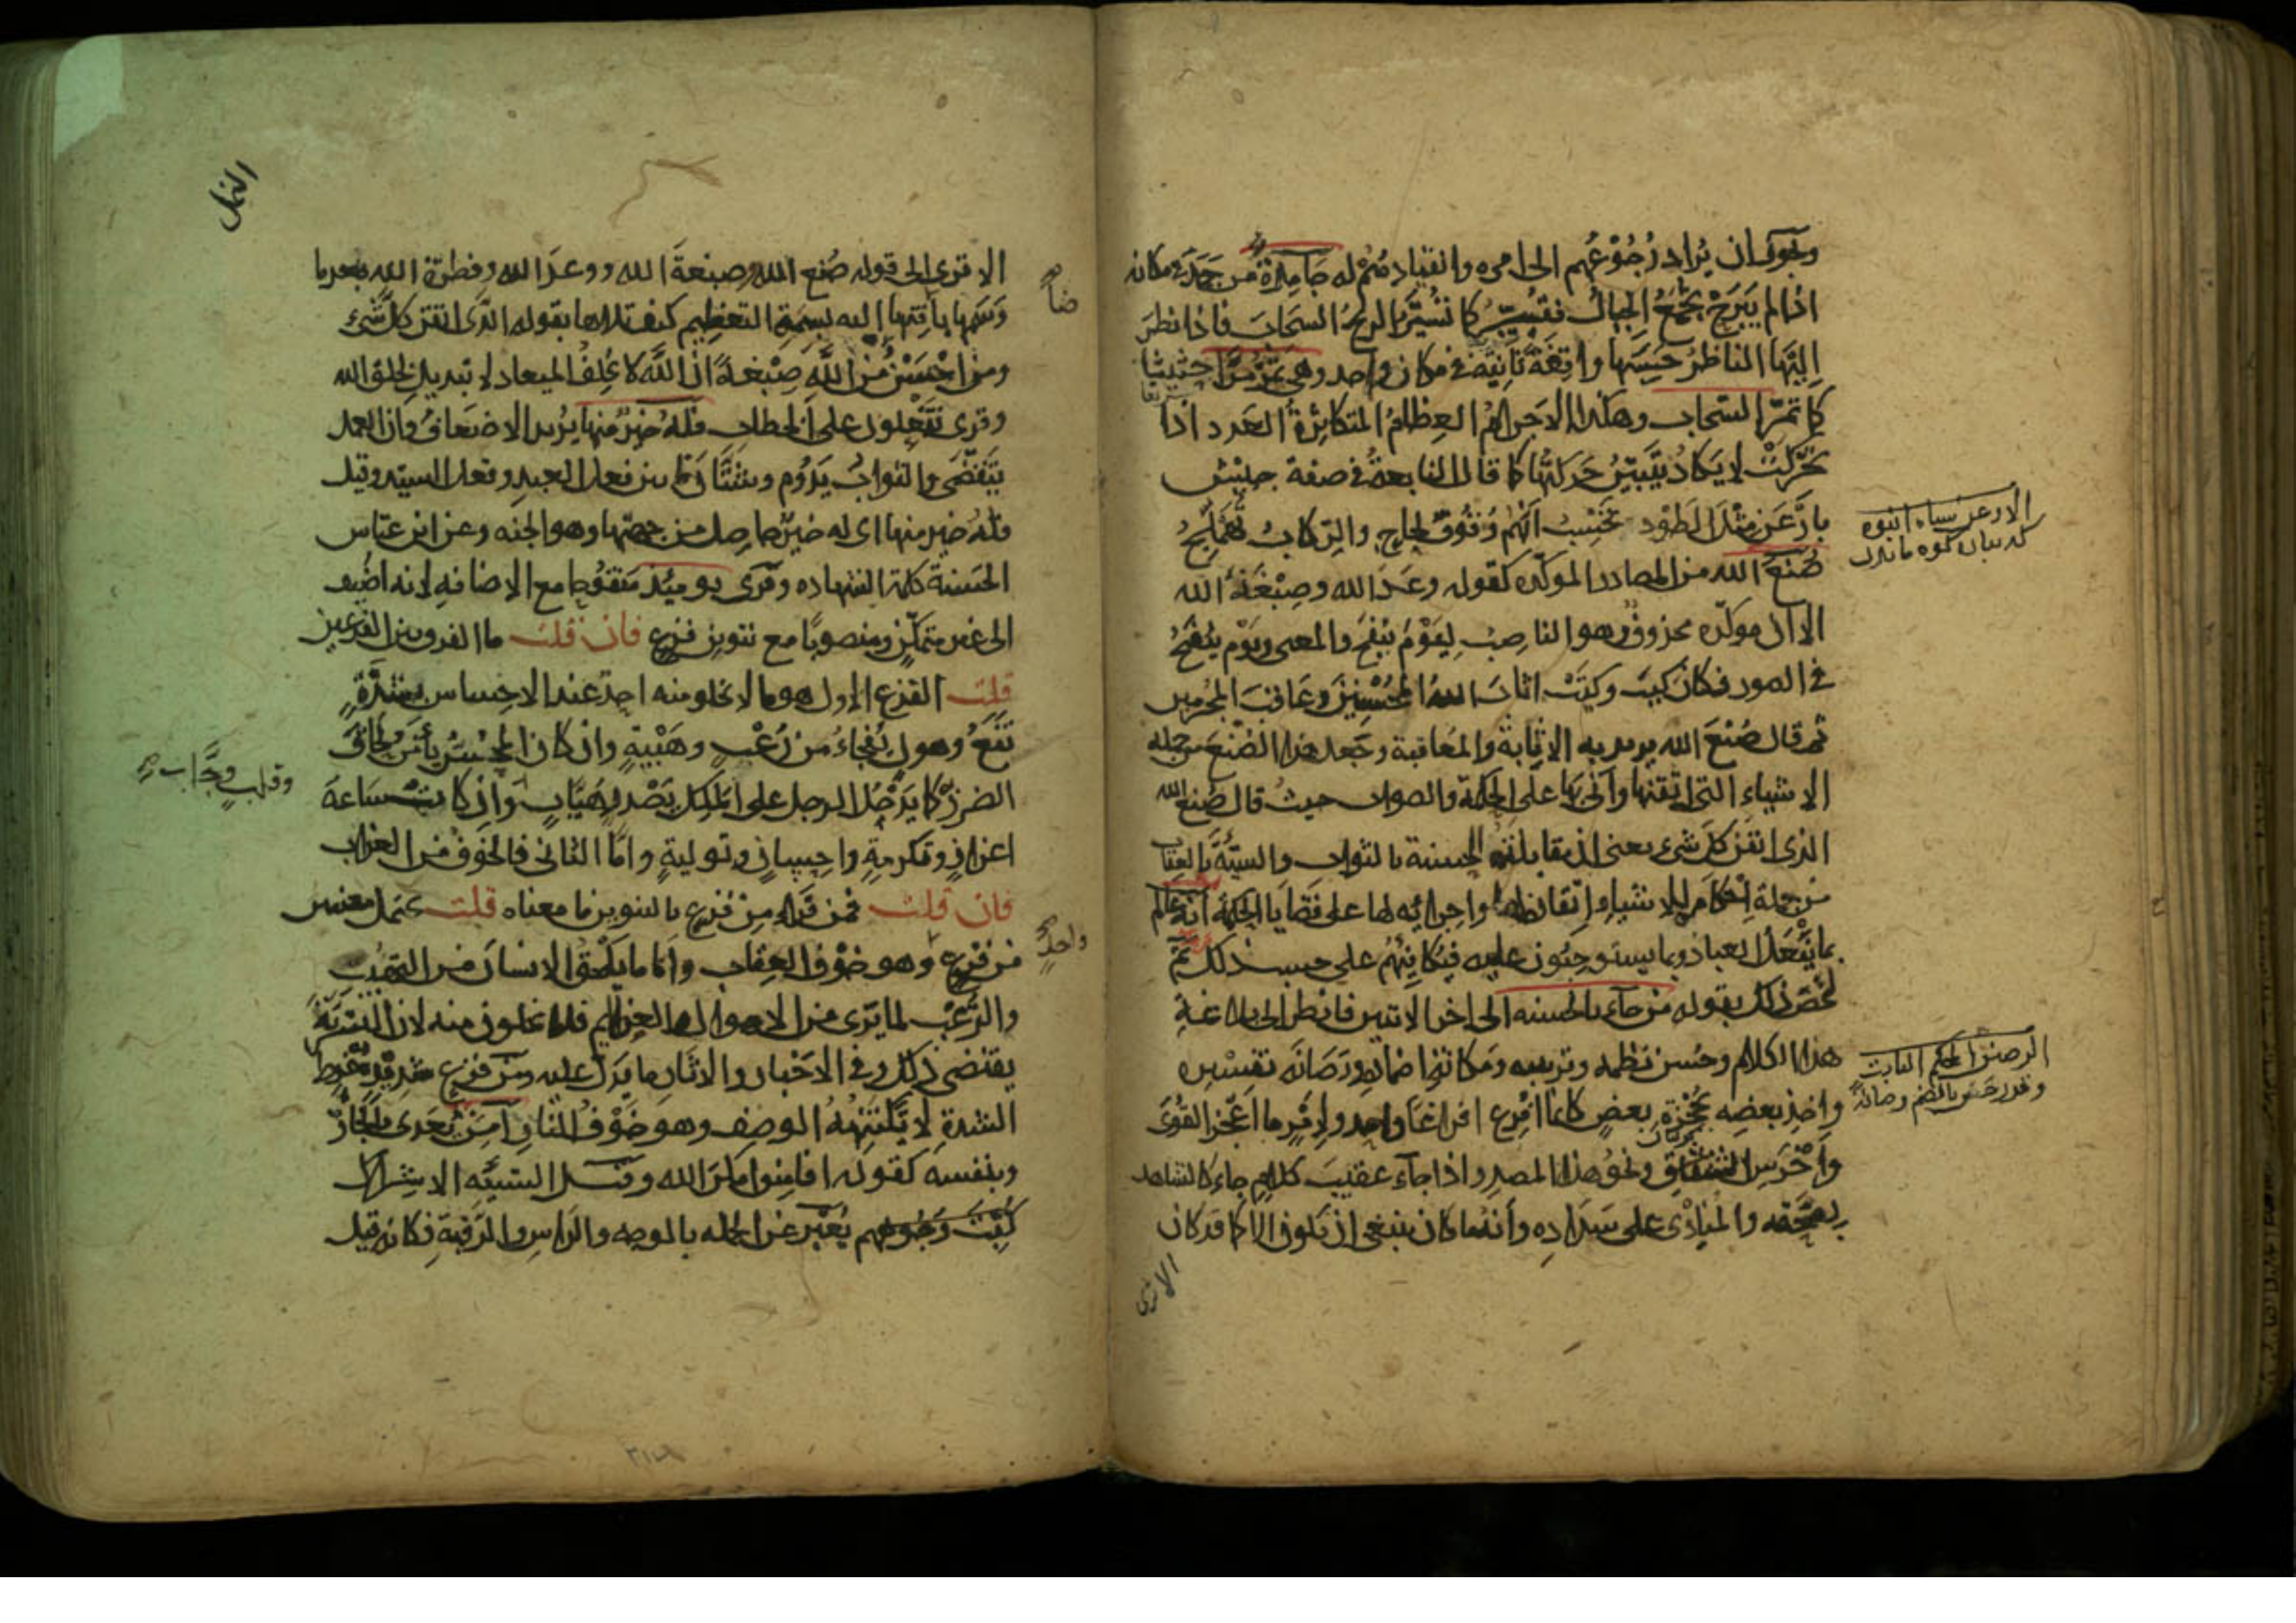 ويجوز ان يُراد رُجُوعُهم الى امره وانقيادهم له جَامِدَةً من جَمَدَ في مكانه
اذا لم يَبرَحْ تُجْمَعُ الجبالُ فتُسيَّر كما تُسَيِّرُ الريحُ السحَابَ فاذا نظر
اليها الناظرُ حَسِبَها واقِفَةً ثابتةً في مكان واحد وهي تمرّ مرًّا حثيثًا
كما تمرّ السّحاب وهكذا الاجرامُ العِظامُ المتكاثرةُ العَدد اذا
تحرّكَتْ لا يَكادُ يتبيّنُ حَركتُها كما قال النابغةُ في صفة جيش
بارْعَن مثلَ الطوْد تحسبُ انّهُم وُقوفٌ لحاج والرّكابُ تُهَملِجُ
صُنعَ الله من المصادر الموكّده كقوله وعَدَ الله وصِبْغَةَ الله
الا ان موكّده محذوف وهو الناصبُ لِيَوْمَ يُنفخُ والمعنى ويَوْم يُنفخُ
في الصور فكان كيتَ وكيَتْ اثابَ اللهُ المُحْسِنِينَ وعَاقَبَ المجرمين
ثم قال صُنْعَ الله يريد به الاثابةَ والمُعاقبة وجَعل هذا الصُنْعَ من جمله
الاشياءِ التي اتقنها واتى بها على الحكمة والصواب حيث قال صُنع الله
الذى اتقن كلَّ شىء يعنى ان مقابلته الحسنة بالثواب والسيّئة بالعقاب
من جملة احْكامه للاشياءِ واتقانه لها واجرائه لها على قضايا الحكمة انه عالم
بما يَفْعَلُ العبادُ وبما يستوجبُون عليه فيُكافيهُم على حسب ذلك ثمّ
لخّص ذلك بقوله مَنْ جآءَ بالحسنه الى اخر الايتين فانظر الى بلاغةِ
هذا الكلام وحُسن نظمه وترتيبه ومَكانة اضماده ورَصانَة تفسيره
واخذِ بعضِه بحُجْزَةِ بعضٍ كانما اُفرِغ افراغًا واحد ولِامْرٍ ما اعْجَز القُوَى
وَاَخْرَسَ الشقاشق ونحوُ هذا المصدر اذا جآء عقيبَ كلامٍ جاء كالشاهد
بصحّته والمُنادِى على سَدَاده وأنه ما كان ينبغى ان يكون الا كما قد كان
الا ترى
الارعن سياه انبوه
كه بسان كوه مانند
الرصين المحكم الثابت
النمل
الا ترى الى قوله صُنع الله وصِبغةَ الله ووعدَ الله وفطرةَ الله بعد ما
وَسَمَها باضافتها اليه بسِمَةِ التعظيم كيف تلاها بقوله الذى اتقن كلَّ شىء
ومن احْسَنُ منَ الله صِبْغةً انّ اللّهَ لا يُخلِفُ الميعاد لا تبديل لخلق الله
وقرى تَفْعلون على الخطاب فله خيرٌ منها يُريد الاضعافَ وان العمل
يَتقَضّى والثوابُ يَدُوم وشتّان ما بين فعل العبد وفعل السيّد وقيل
فله خير منها اى له خيرٌ حاصل من جهتها وهو الجنه وعن ابن عبّاس
الحَسنة كلمة الشهاده وقرى يوميئذ مَفتُوحا مع الاضافه لانه اضيف
الى غير متمكّن ومنصوبًا مع تنوين فزعٍ فان قلت ما الفرق بين الفزعين
قلت الفزع الاول هو ما لا يخلو منه احدٌ عند الاحساس بشدّةٍ
تقَعُ وهول يَفجاءُ من رُعْبٍ وهَيْبةٍ وان كان المحسنُ يأمَنُ لحاق
الضرر كما يَدْخُل الرجل على المَلِك بصَدرٍ هيّابٍ وان كانت سَاعة
اعزازٍ وتكرمةٍ واحسانٍ وتوليةٍ وامّا الثانى فالخوفُ من العذاب
فان قلت فمن قَراء مِنْ فزعٍ بالتنوين ما معناه قلت يحتمل معنيين
من فزع وهو خوْف العِقاب وامّا ما يَلْحَقُ الانسانَ من التهيّب
والرّعْب لما يَرَى من الاهوال العظايم فلا يخلون منه لان البشريّة
يقتضى ذلك وفى الاخبار والاثار ما يَدلّ عليه ومن فزع شديدٍ مُفرِط
الشدة لا يَكْتَنِهُهُ الوصف وهو خَوْفُ النار اَمِنَ يُعَدى بالجارّ
وبنفسه كقوله افامِنوا مكرَ الله وقيل السيّئه الاشراك
كُبّت وُجُوههم يُعَبّر عن الجمله بالوجه والراس والرّقبةِ فكانه قيل
وقلبٍ وجّابٍ صح
ضا صح
واحدٍ صح